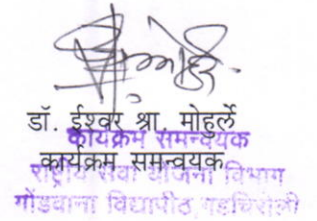 डॉ. ईश्वर श्रा. मोहुर्ले
कार्यक्रम समन्वयक
कार्यक्रम समन्वयक
राष्ट्रीय सेवा योजना विभाग
गोंडवाना विद्यापीठ, गडचिरोली